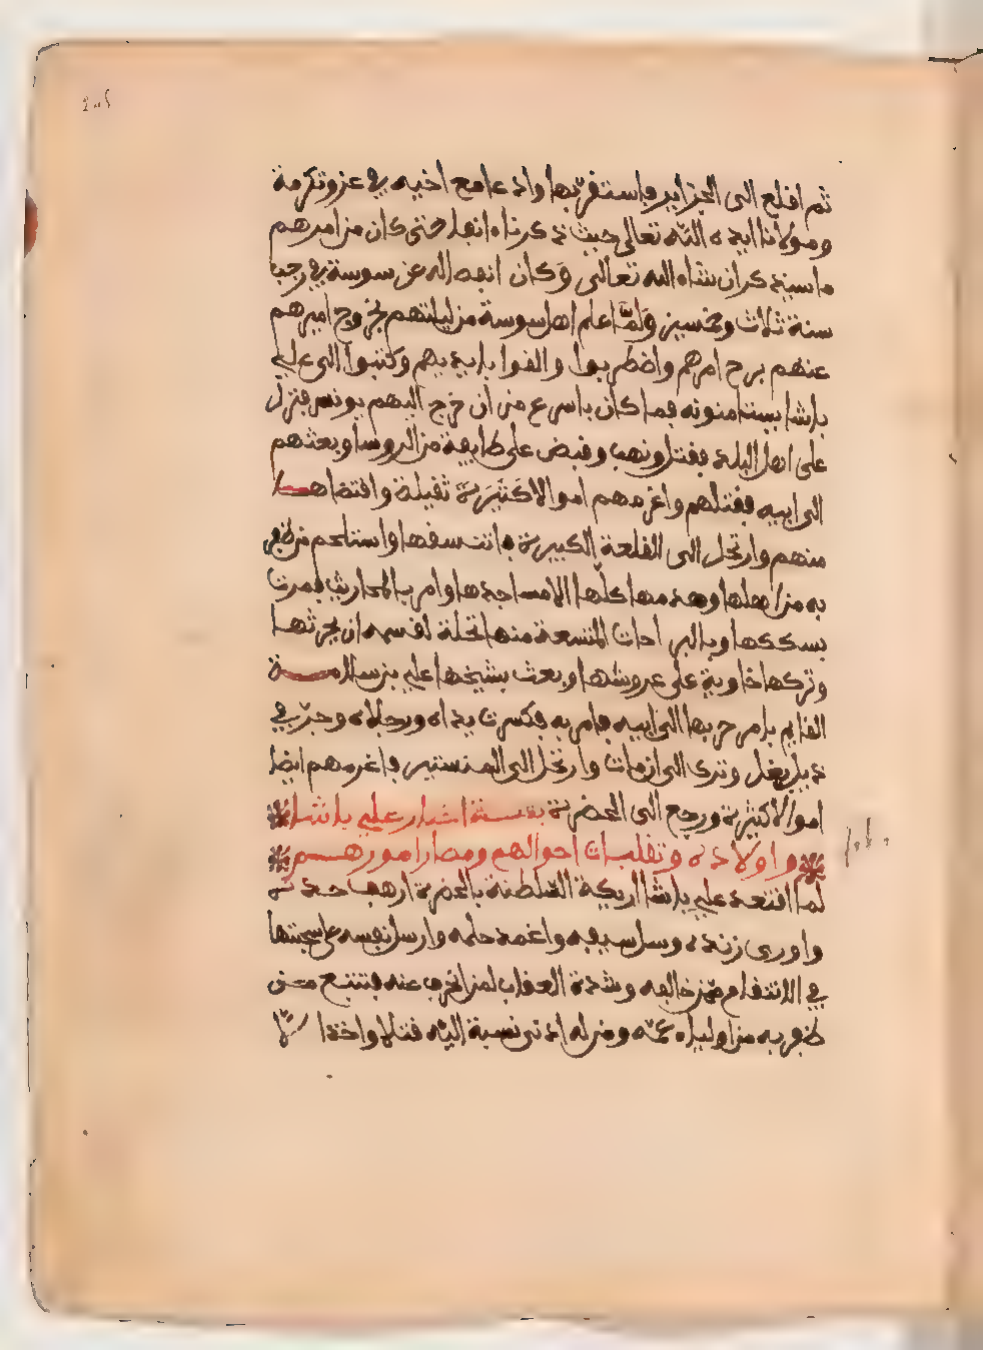 ثم اقلع الى الجزاير فاستقر بها واد عا مع اخيه في عز وتكرمة
ومولانا ايده الله تعالى حيث ذكرناه انفا حتى كان من امرهم
ما سيذكر ان شاء الله تعالى وكان انفصاله عن سوسة في رجب
سنة ثلاث وخمسين ولما علم اهل سوسة من ليلتهم بخروج اميرهم
عنهم برح امرهم واضطربوا والقوا بايديهم وكتبوا الى علي
باشا يستامنونه فما كان باسرع من ان خرج اليهم يونس فنزل
على اهل البلد فقتل ونهب وقبض على طايفة من الروسا وبعثهم
الى ابيه فقتلهم واغرمهم اموالا كثيرة ثقيلة واقتضاها
منهم وارتحل الى القلعة الكبيرة فانتسفها واستلحم من ظفر
به من اهلها وهدمها كلها الا مساجدها وامر بالمحاريث فمرت
بسككها وبالبراحات المتسعة منها تحلة لقسمه ان يحرثها
وتركها خاوية على عروشها وبعث بشيخها علي بن سلامة
القايم بامر حربها الى ابيه فامر به فكسرت يداه ورجلاه وجر في
ذيل بغل وترك الى ان مات وارتحل الى المنستير فاغرمهم ايضا
اموالا كثيرة ورجع الى الحضرة بقية اخبار علي باشا
واولاده وتقلبات احوالهم ومصار امورهم
لما اقتعد علي باشا اريكة السلطنة بالحضرة ارهف حده
واورى زنده وسل سيفه واغمد حلمه وارسل نفسه على سجيتها
في الانتقام ممن خالفه وشدة العقاب لمن انحرف عنه فتتبع من
ظفر به من اولياء عمه ومن له ادنى نسبة اليه قتلا واخذا